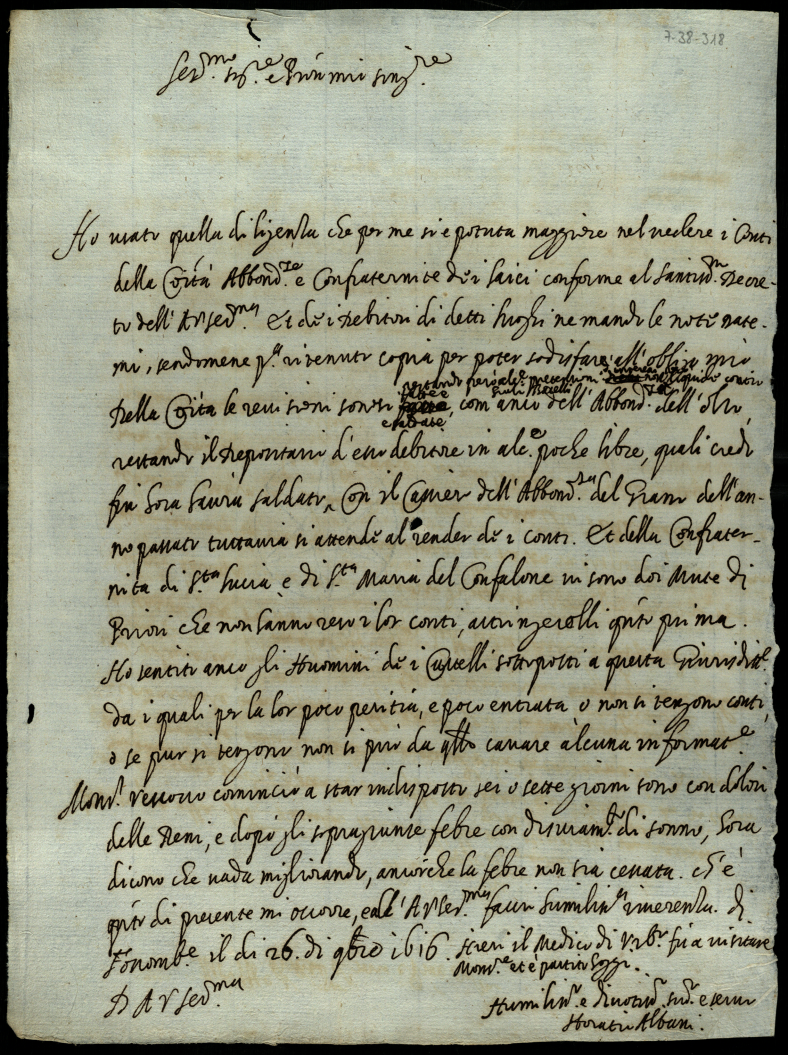 7-38-318
Ser.mo sig.re e Pron mio sing.re
Ho usato quella diligenza che per me si è potuta maggiore nel vedere i Conti
della Città Abbond.ze e Confraternite de i laici conforme al santiss.m Decre-
to dell'A.V.Ser.ma Et de i Debitori di detti luoghi ne mando le note date-
mi, sendomene p.a ritenuto copia per poter sodisfare all'obligo mio
restando però alc.e pretensioni non liquide contro
Della Città le revisioni sono fatte e saldate, com'anco dell'Abbond.za dell'olio,
restando il Depositario d'esso debitore in alc.e poche libre, quali credo
fin hora havrà saldato, Con il Cassier dell'Abbond.za del Grano dell'an-
no passato tuttavia si attende al render de i conti. Et della Confrater-
nita di S.ta Lucia, e di S.ta Maria del Confalone vi sono doi Mute di
Priori che non hanno reso i lor conti, astringerolli q.to prima.
Ho sentito anco gli Huomini de i Castelli sottoposti a questa Giurisditt.e
da i quali per la lor poca peritia, e poca entrata o non si tengono conti,
o se pur si tengono non si può da q.lli cavare alcuna informat.e
Mons.r Vescovo cominciò a star indisposto sei o sette giorni sono con dolori
delle Reni, e dopò gli sopragiunse febre con disviam.to di sonno, hora
dicono che vada migliorando, ancorche la febre non sia cessata. ch'è
q.to di presente mi occorre, e all'A.V.Ser.ma faccio humiliss.a riverenza. di
Fossomb.e il di 26 di 9bre 1616. hieri il Medico di Urb.o fu a visitare
Mons.re et è partito hoggi.
D.A.V.Ser.ma
Humiliss.o e divotiss.o sud.o e servo
Horatio Albani.